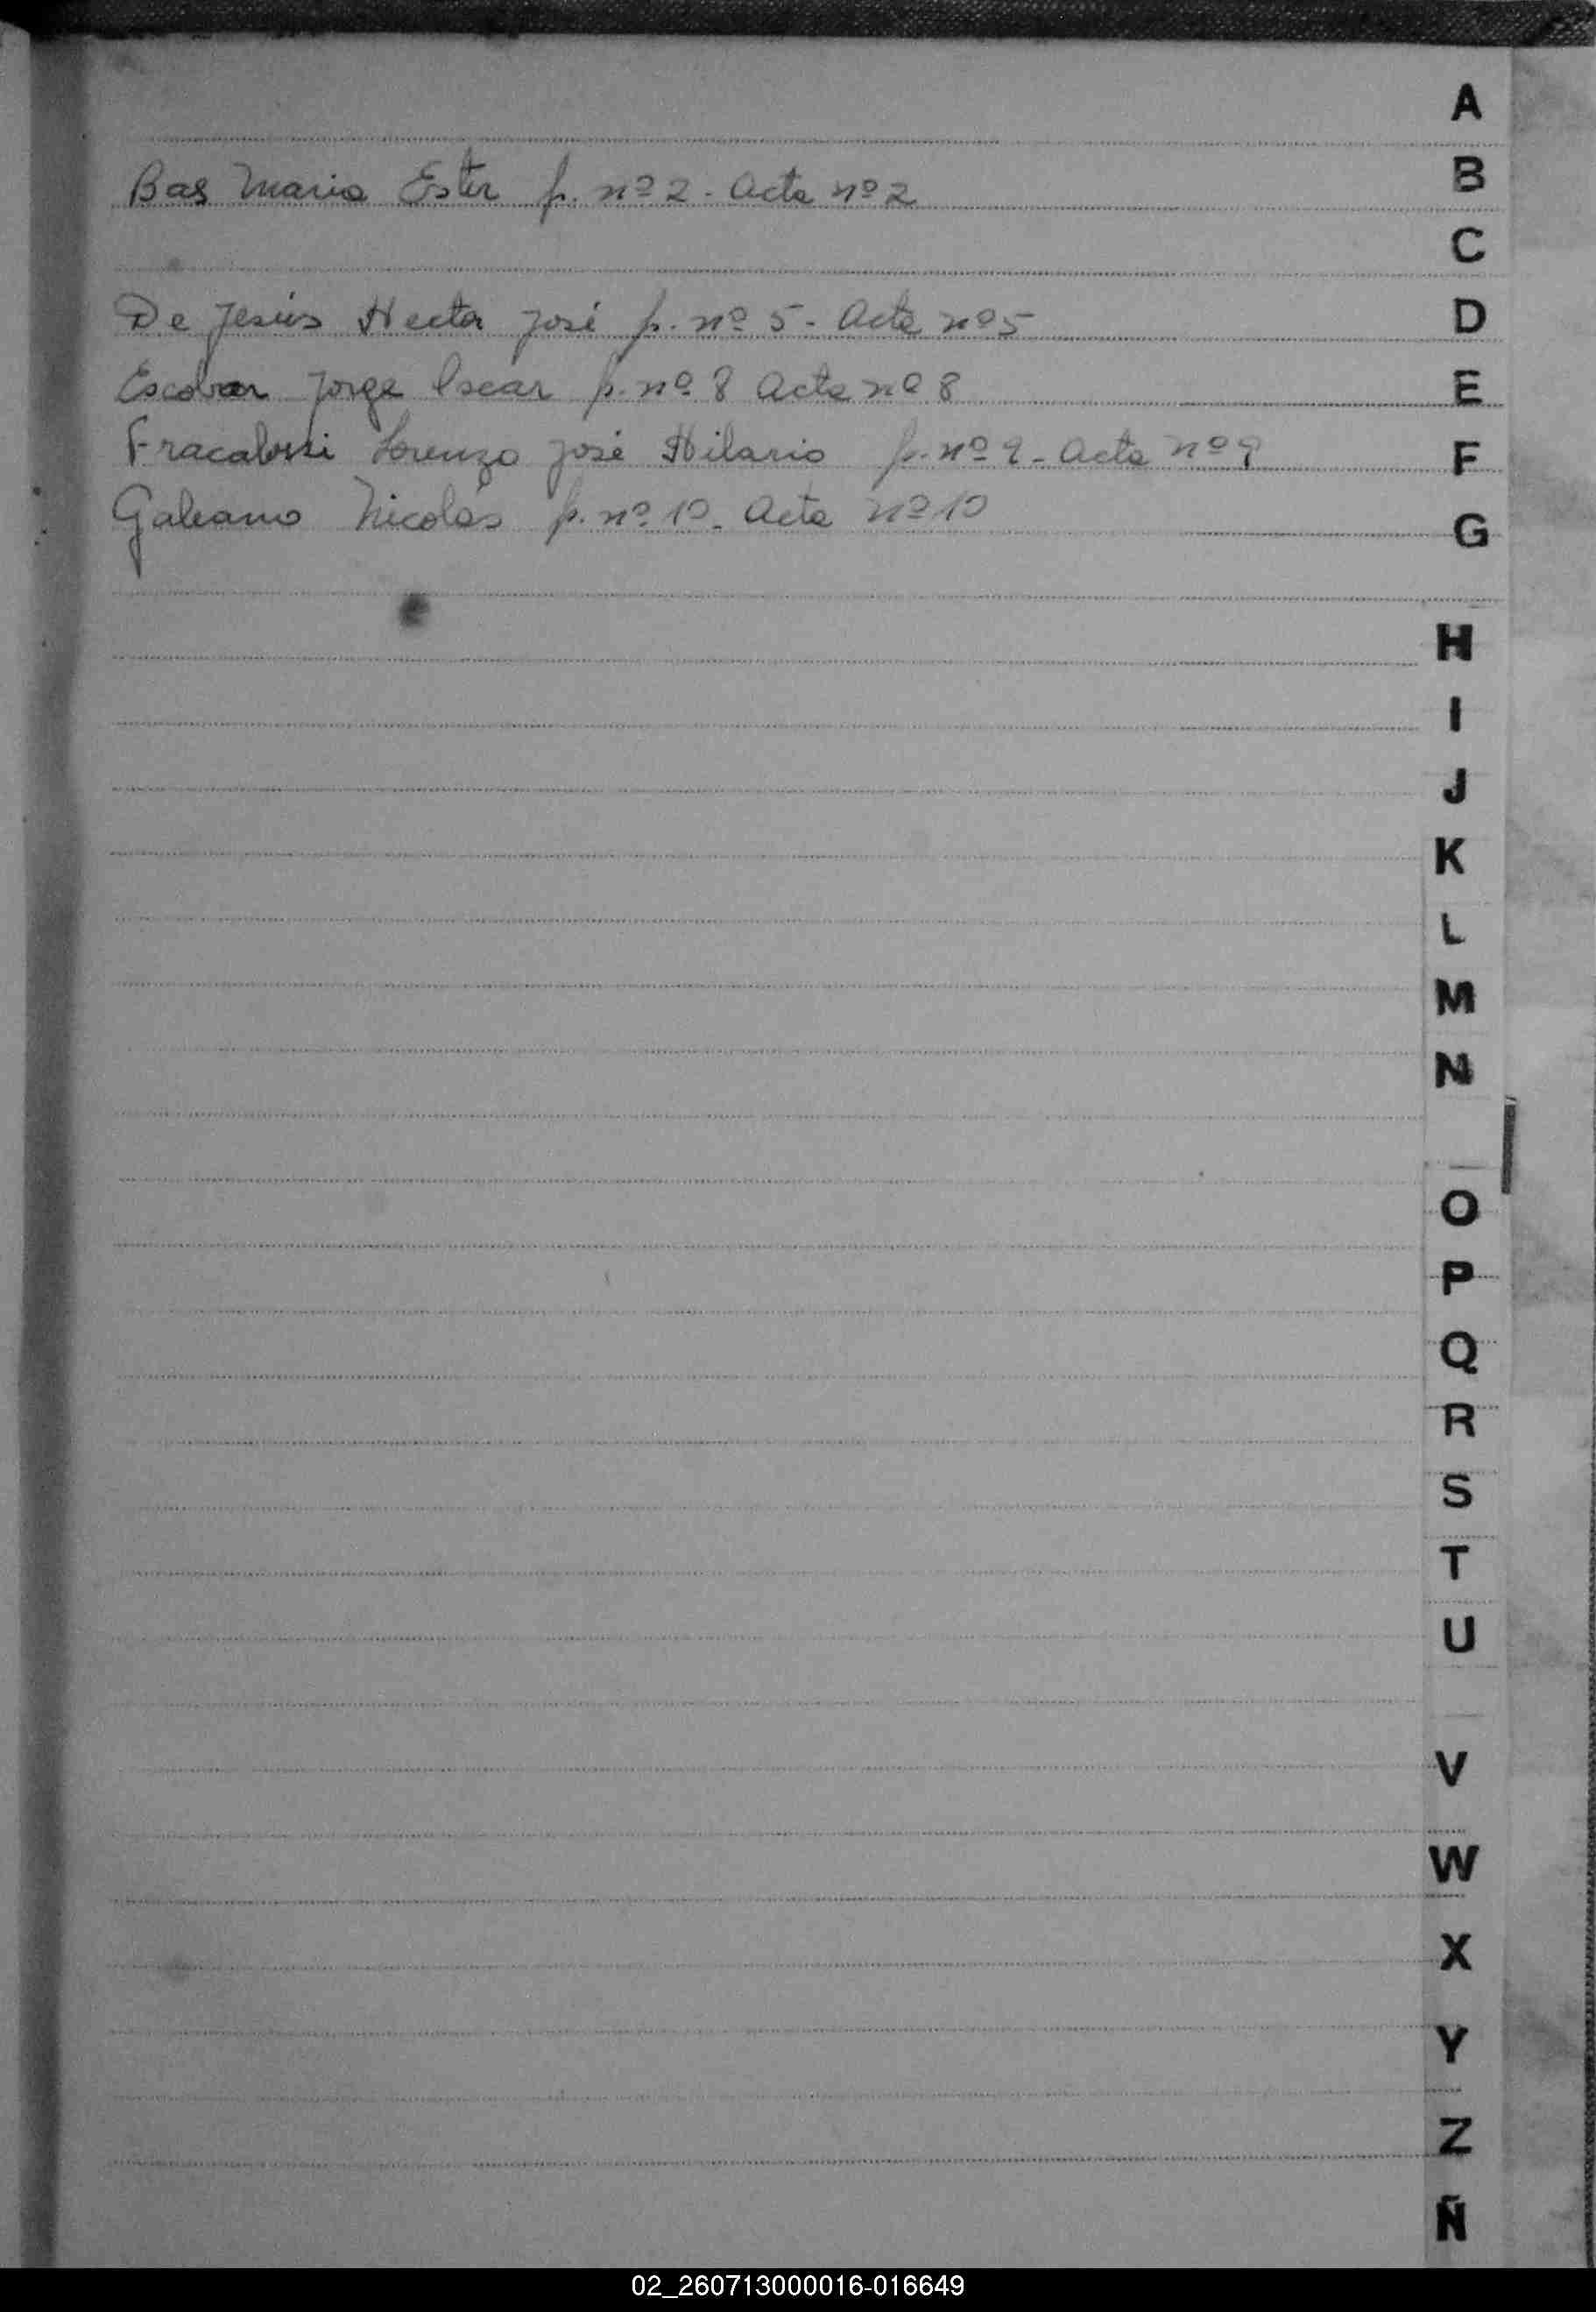 A
Bas Maria Ester p. nº 2 - Acta nº 2
B
C
De Jesús Hector José p. nº 5 - Acta nº 5
D
Escobar Jorge Oscar p. nº 8 Acta nº 8
E
Fracalossi Lorenzo José Hilario p. nº 9 - Acta nº 9
F
Galeano Nicolás p. nº 10 - Acta nº 10
G
H
I
J
K
L
M
N
O
P
Q
R
S
T
U
V
W
X
Y
Z
Ñ
02_260713000016-016649